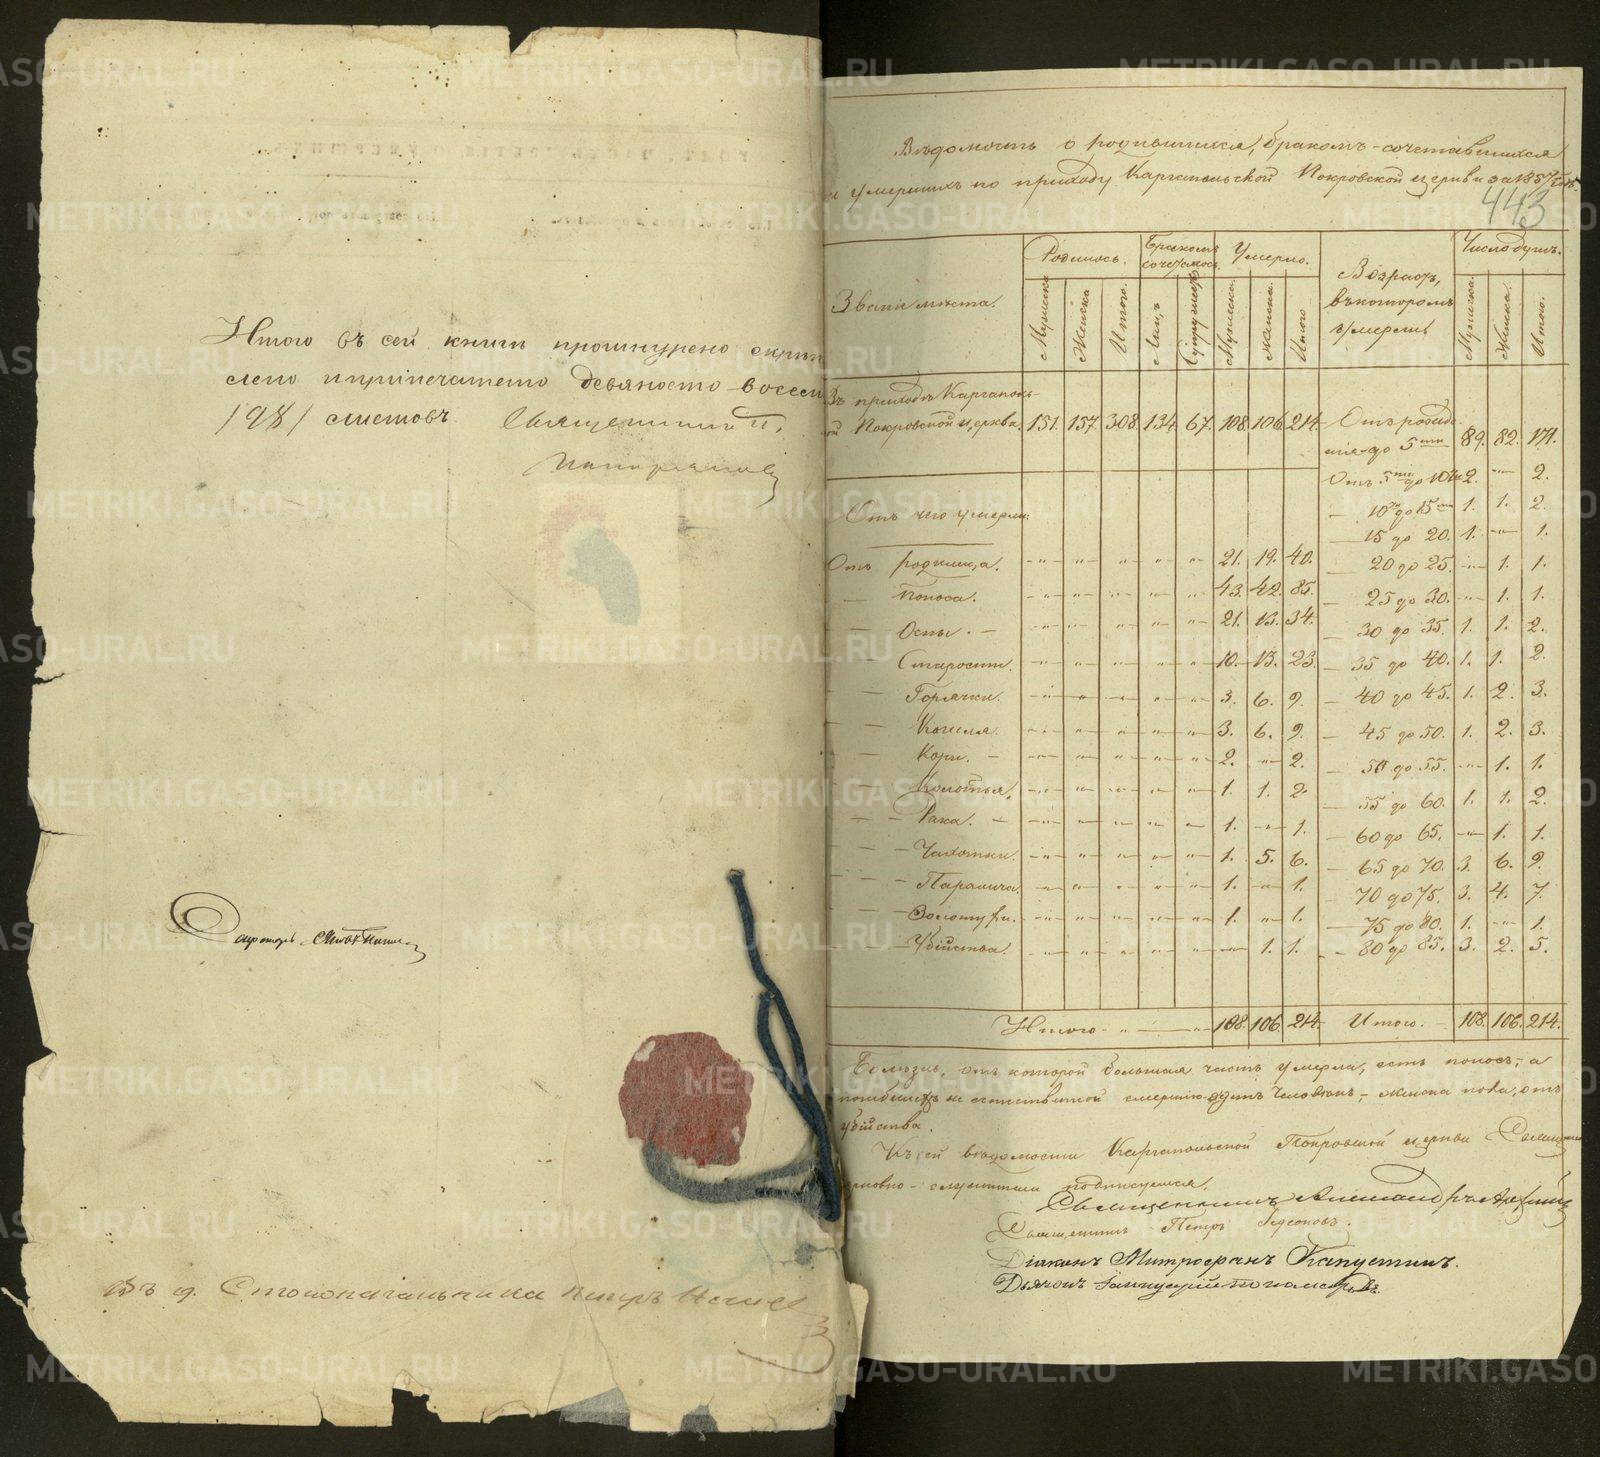 Итого въ сей книгѣ прошнурено скрѣп
лено и припечатено девяносто восем
/98/ листовъ Священникъ П.
въ д. Столоначальника Петръ
Вѣдомость о родившихся, бракомъ-сочетавшихся
и умершихъ по приходу Каргапольской Покровской церкви за 1857 годъ
443
Званіе мѣста. Родилось. Бракомъ сочеталось. Умерло. Возрастъ, въ которомъ умерли Число душъ.
Мужеска Женска Итого. Лицъ Супружествъ Мужеска. Женска. Итого Мужеска. Женска. Итого.
Въ приходѣ Каргаполь-
ой Покровской церкви. 151. 157. 308. 134. 67. 108. 106. 214. Отъ рожде-
нія до 5ти 89. 82. 171.
Отъ 5ти до 10ти 2. — 2.
Отъ чего умерли. — 10ти до 15ти 1. 1. 2.
— 15 до 20. 1. — 1.
Отъ родимца. 21. 19. 40. — 20 до 25. — 1. 1.
— Поноса. 43. 42. 85. — 25 до 30. — 1. 1.
— Оспы. 21. 13. 34. — 30 до 35. 1. 1. 2.
— Старости. 10. 13. 23. — 35 до 40. 1. 1. 2.
— Горячки. 3. 6. 9. — 40 до 45. 1. 2. 3.
— Кашля. 3. 6. 9. — 45 до 50. 1. 2. 3.
— Кори. 2. — 2. — 50 до 55. — 1. 1.
— Колотья. 1. 1. 2. — 55 до 60. 1. 1. 2.
— Рака. 1. — 1. — 60 до 65. — 1. 1.
— Чахотки. 1. 5. 6. — 65 до 70. 3. 6. 9.
— Паралича. 1. — 1. — 70 до 75. 3. 4. 7.
— Золотухи. 1. — 1. — 75 до 80. 1. — 1.
— Убійства. — 1. 1. — 80 до 85. 3. 2. 5.
Итого 108. 106. 214. Итого. 108. 106. 214.
Болѣзнь, отъ которой большая часть умерла, есть поносъ; а
погибшихъ не естественной смертію одинъ человѣкъ, — женска пола, отъ
убійства.
Къ сей вѣдомости Каргапольской Покровской церкви Священно
церковно-служители подписуемся.
Священникъ Александръ
Священникъ Петръ
Діаконъ Митрофанъ Капустинъ.
Дьячокъ